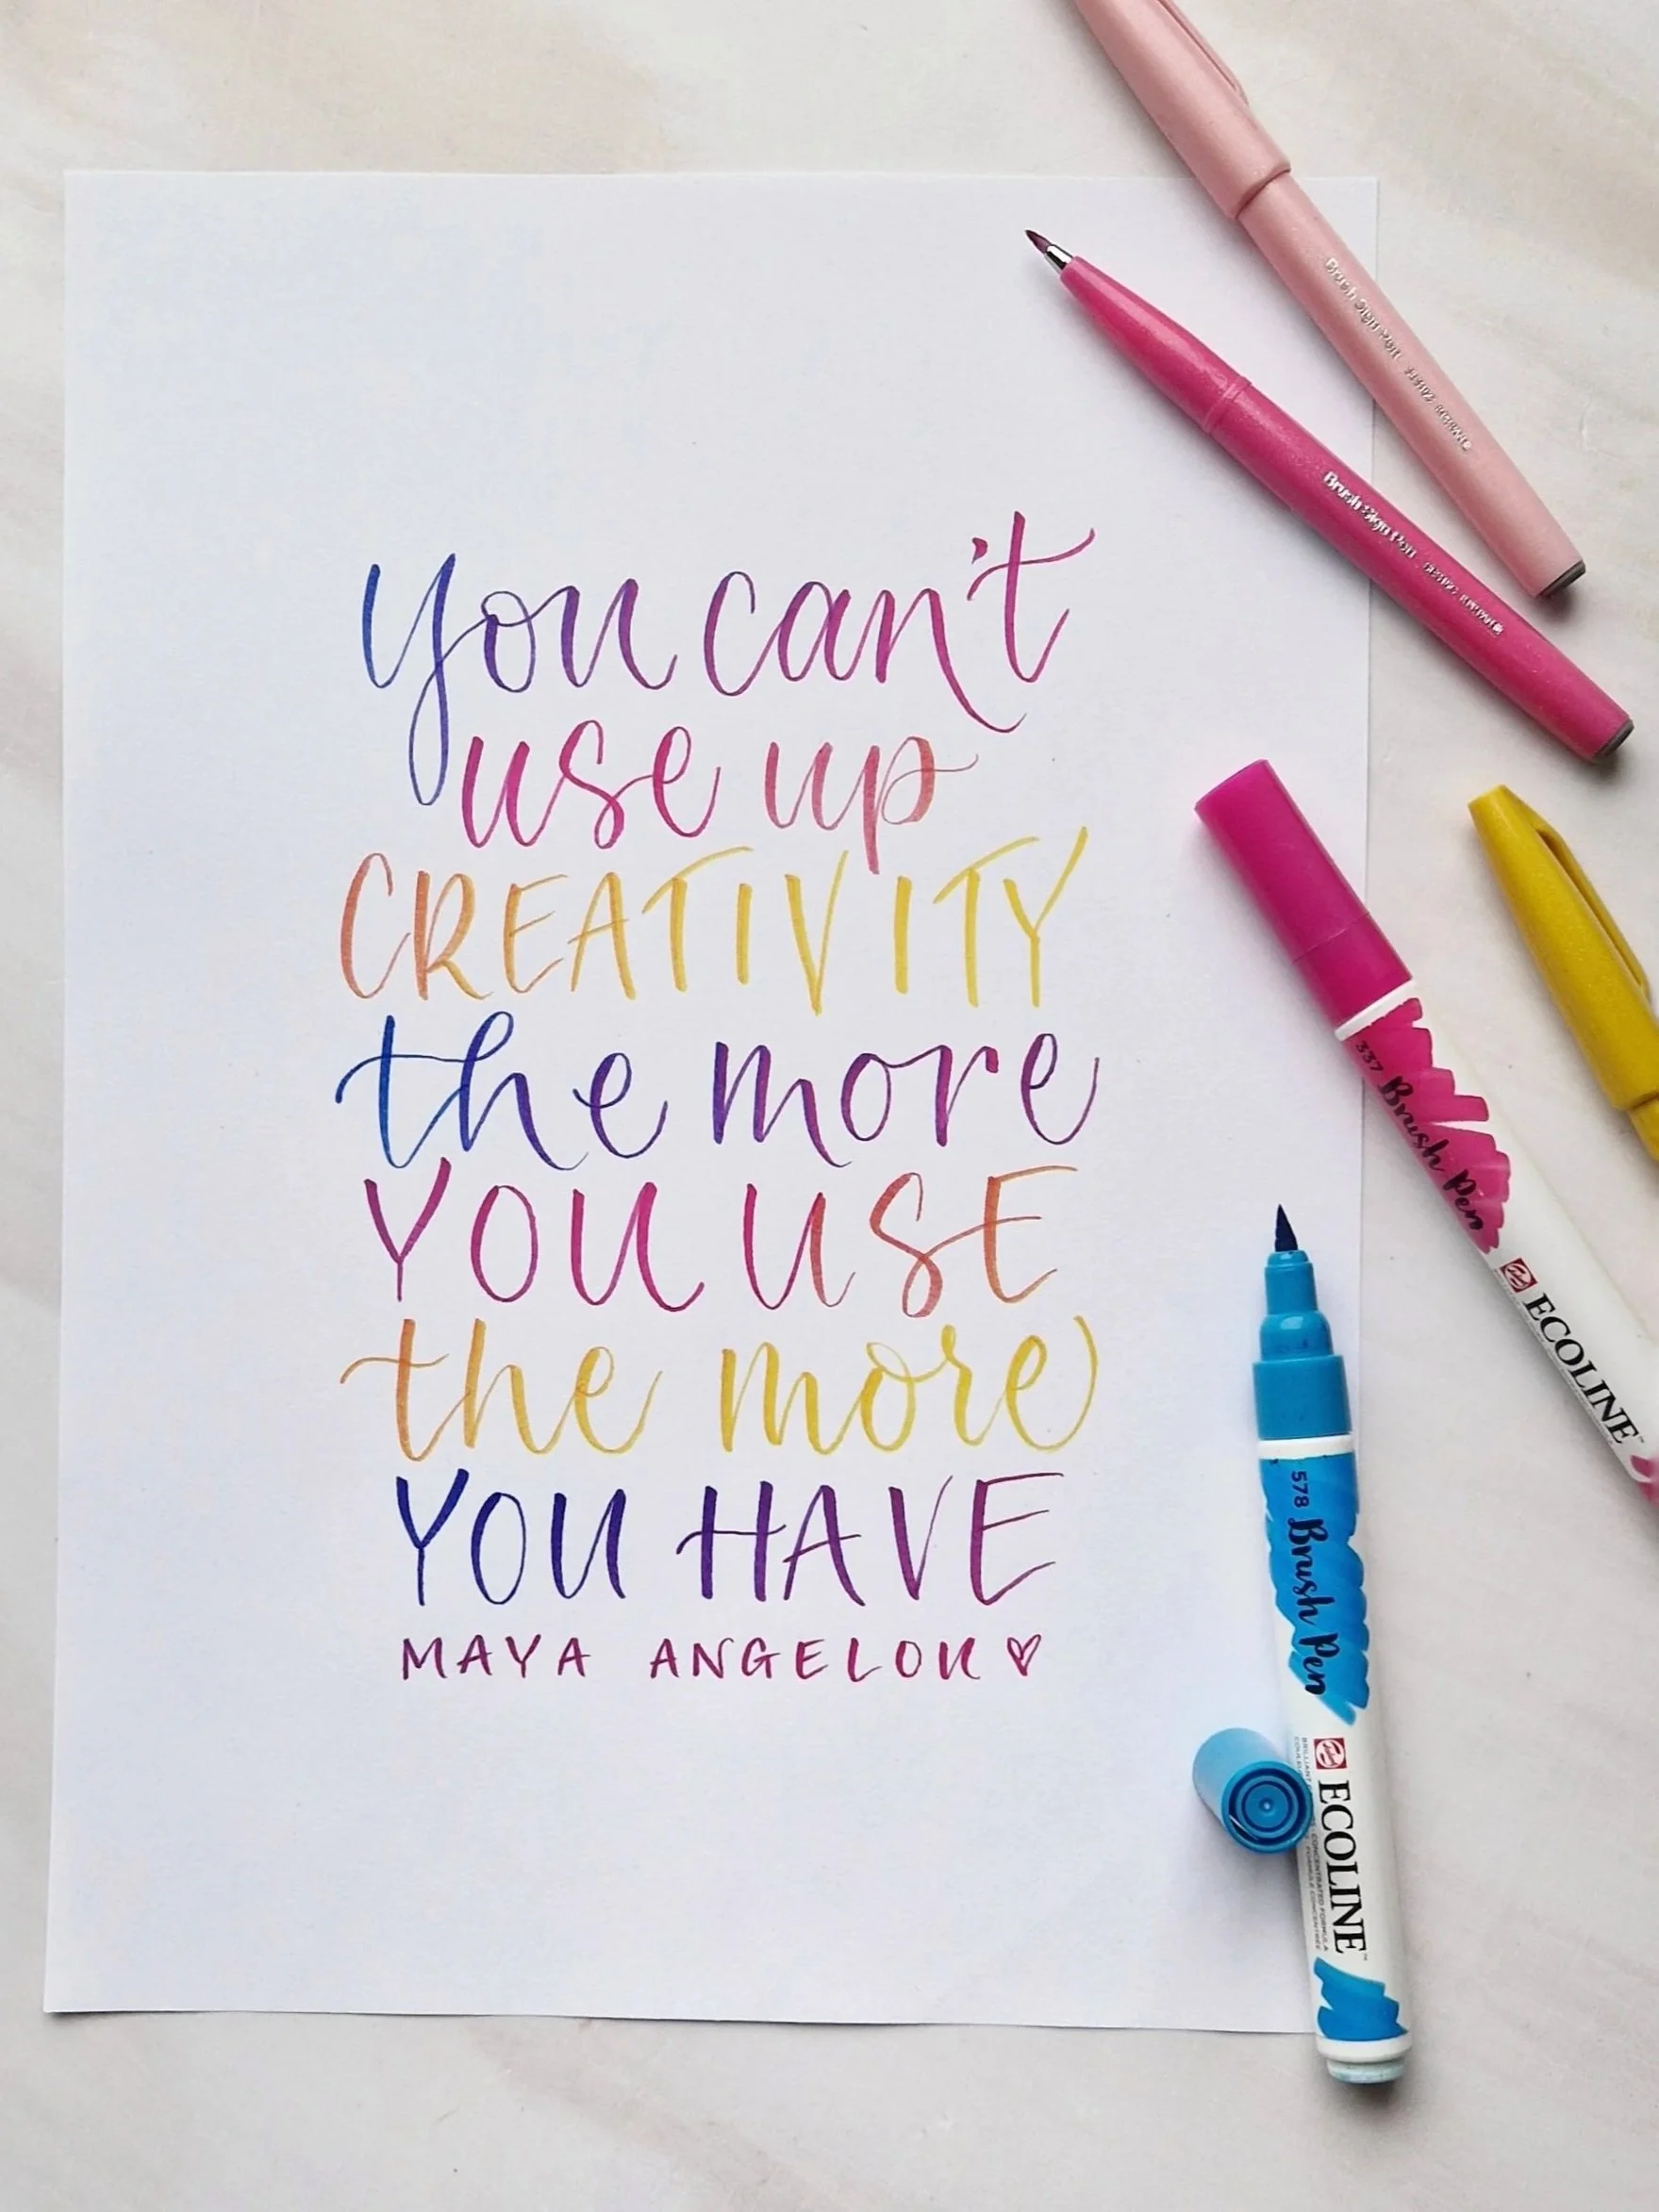 you can't
use up
CREATIVITY
the more
YOU USE
the more
YOU HAVE
MAYA ANGELOU ♡
Brush Sign Pen
Brush Sign Pen
337 Brush Pen
ECOLINE
578 Brush Pen
ECOLINE